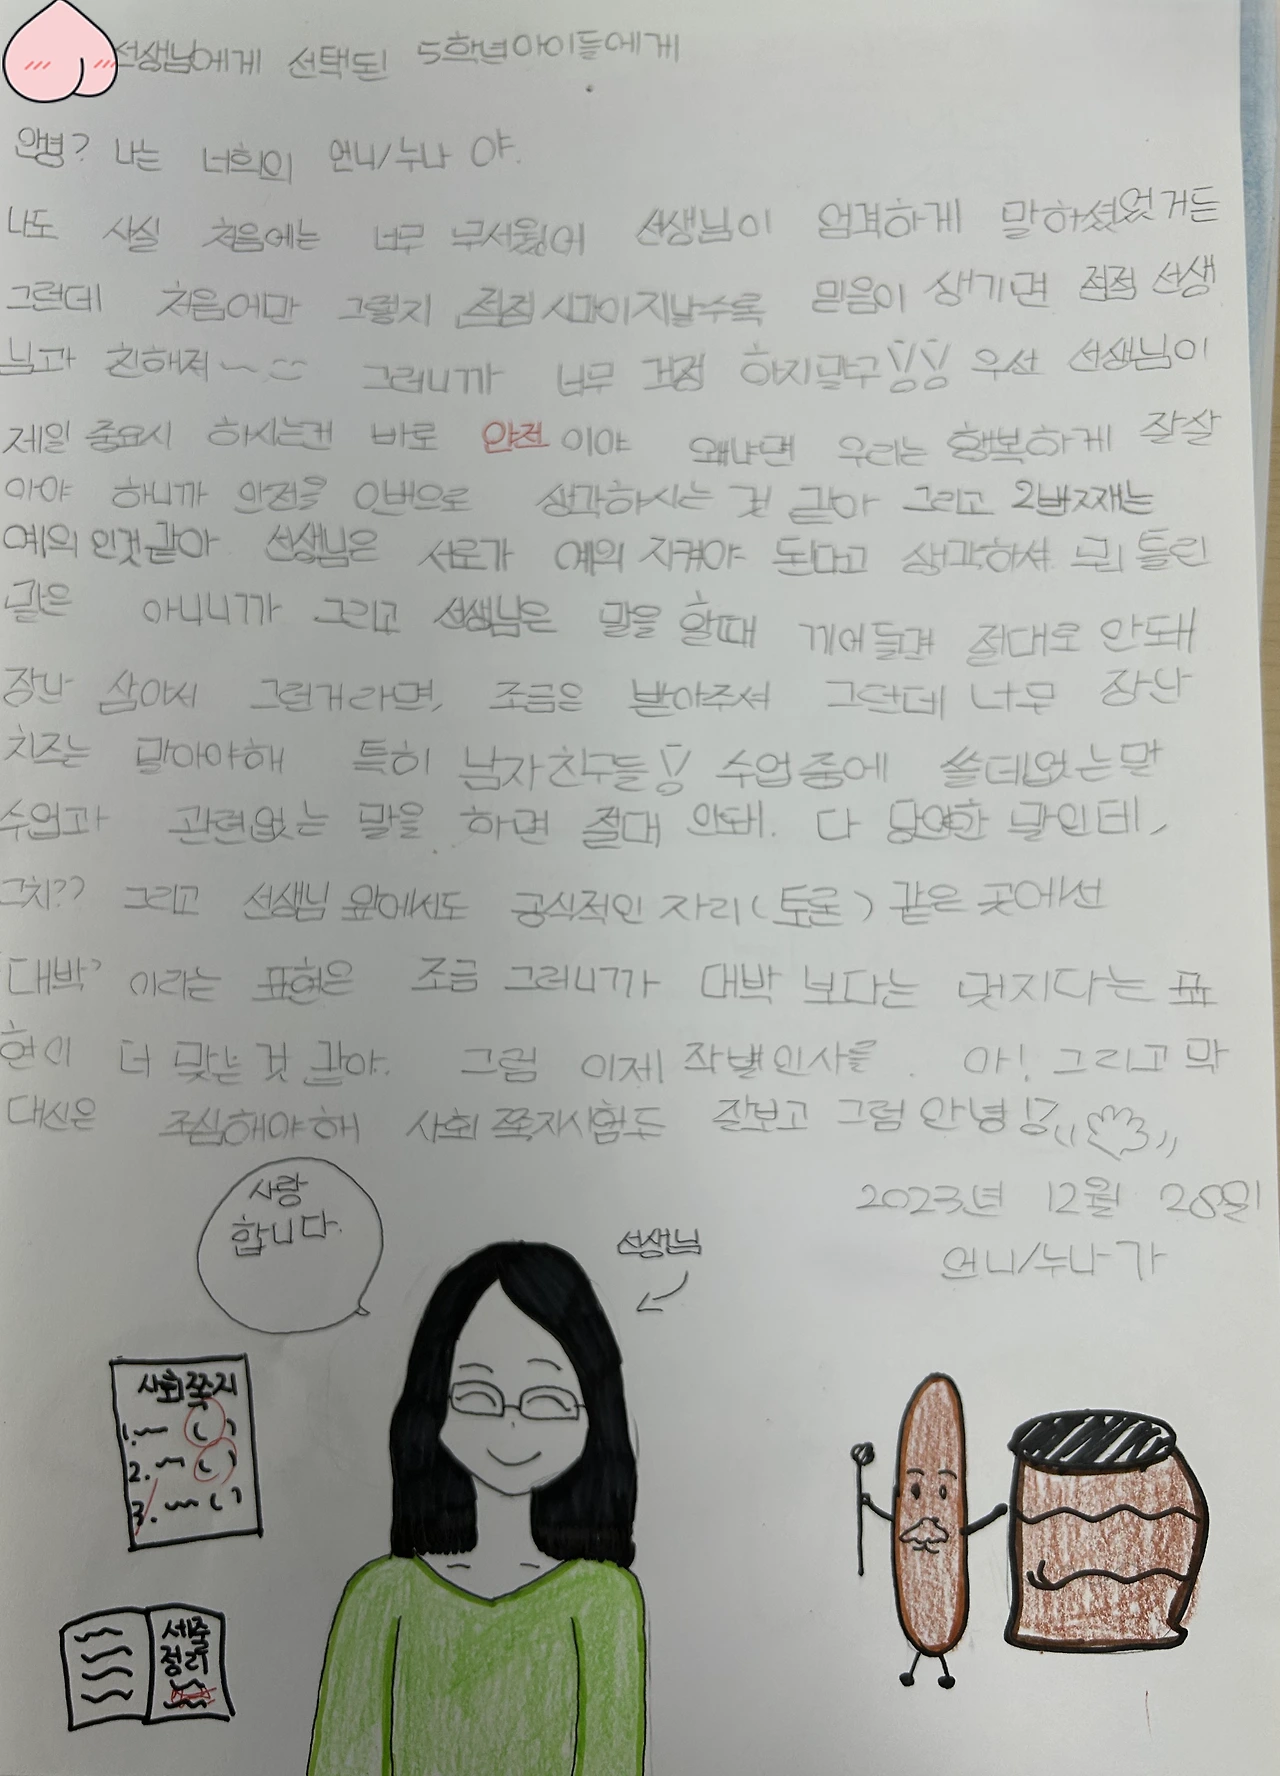 선생님에게 선택된 5학년아이들에게
안녕? 나는 너희의 언니/누나 야.
나도 사실 처음에는 너무 무서웠어 선생님이 엄격하게 말하셨었거든
그런데 처음에만 그렇지 점점 시간이지날수록 믿음이 생기면 점점 선생
님과 친해져~ 그러니까 너무 걱정 하지말구!! 우선 선생님이
제일 중요시 하시는건 바로 안전 이야 왜냐면 우리는 행복하게 잘살
아야 하니까 안전을 0번으로 생각하시는 것 같아 그리고 2번째는
예의 인것같아 선생님은 서로가 예의 지켜야 된다고 생각하셔 뭐 틀린
말은 아니니까 그리고 선생님은 말을 할때 끼어들면 절대로 안돼
장난 삼아서 그런거라면, 조금은 받아주셔 그런데 너무 장난
치즈는 말아야해 특히 남자친구들! 수업중에 쓸데없는말
수업과 관련없는 말을 하면 절대 안돼. 다 당연한 말인데,
그치?? 그리고 선생님 앞에서도 공식적인 자리(토론) 같은 곳에선
'대박' 이라는 표현은 조금 그러니까 대박 보다는 멋지다는 표
현이 더 맞는 것 같아. 그럼 이제 작별인사를. 아! 그리고 막
대신은 조심해야해 사회쪽지시험도 잘보고 그럼 안녕!
2023년 12월 28일
언니/누나 가
사랑
합니다.
선생님
사회쪽지
1. ( )
2. ( )
3. ( )
세줄
정리